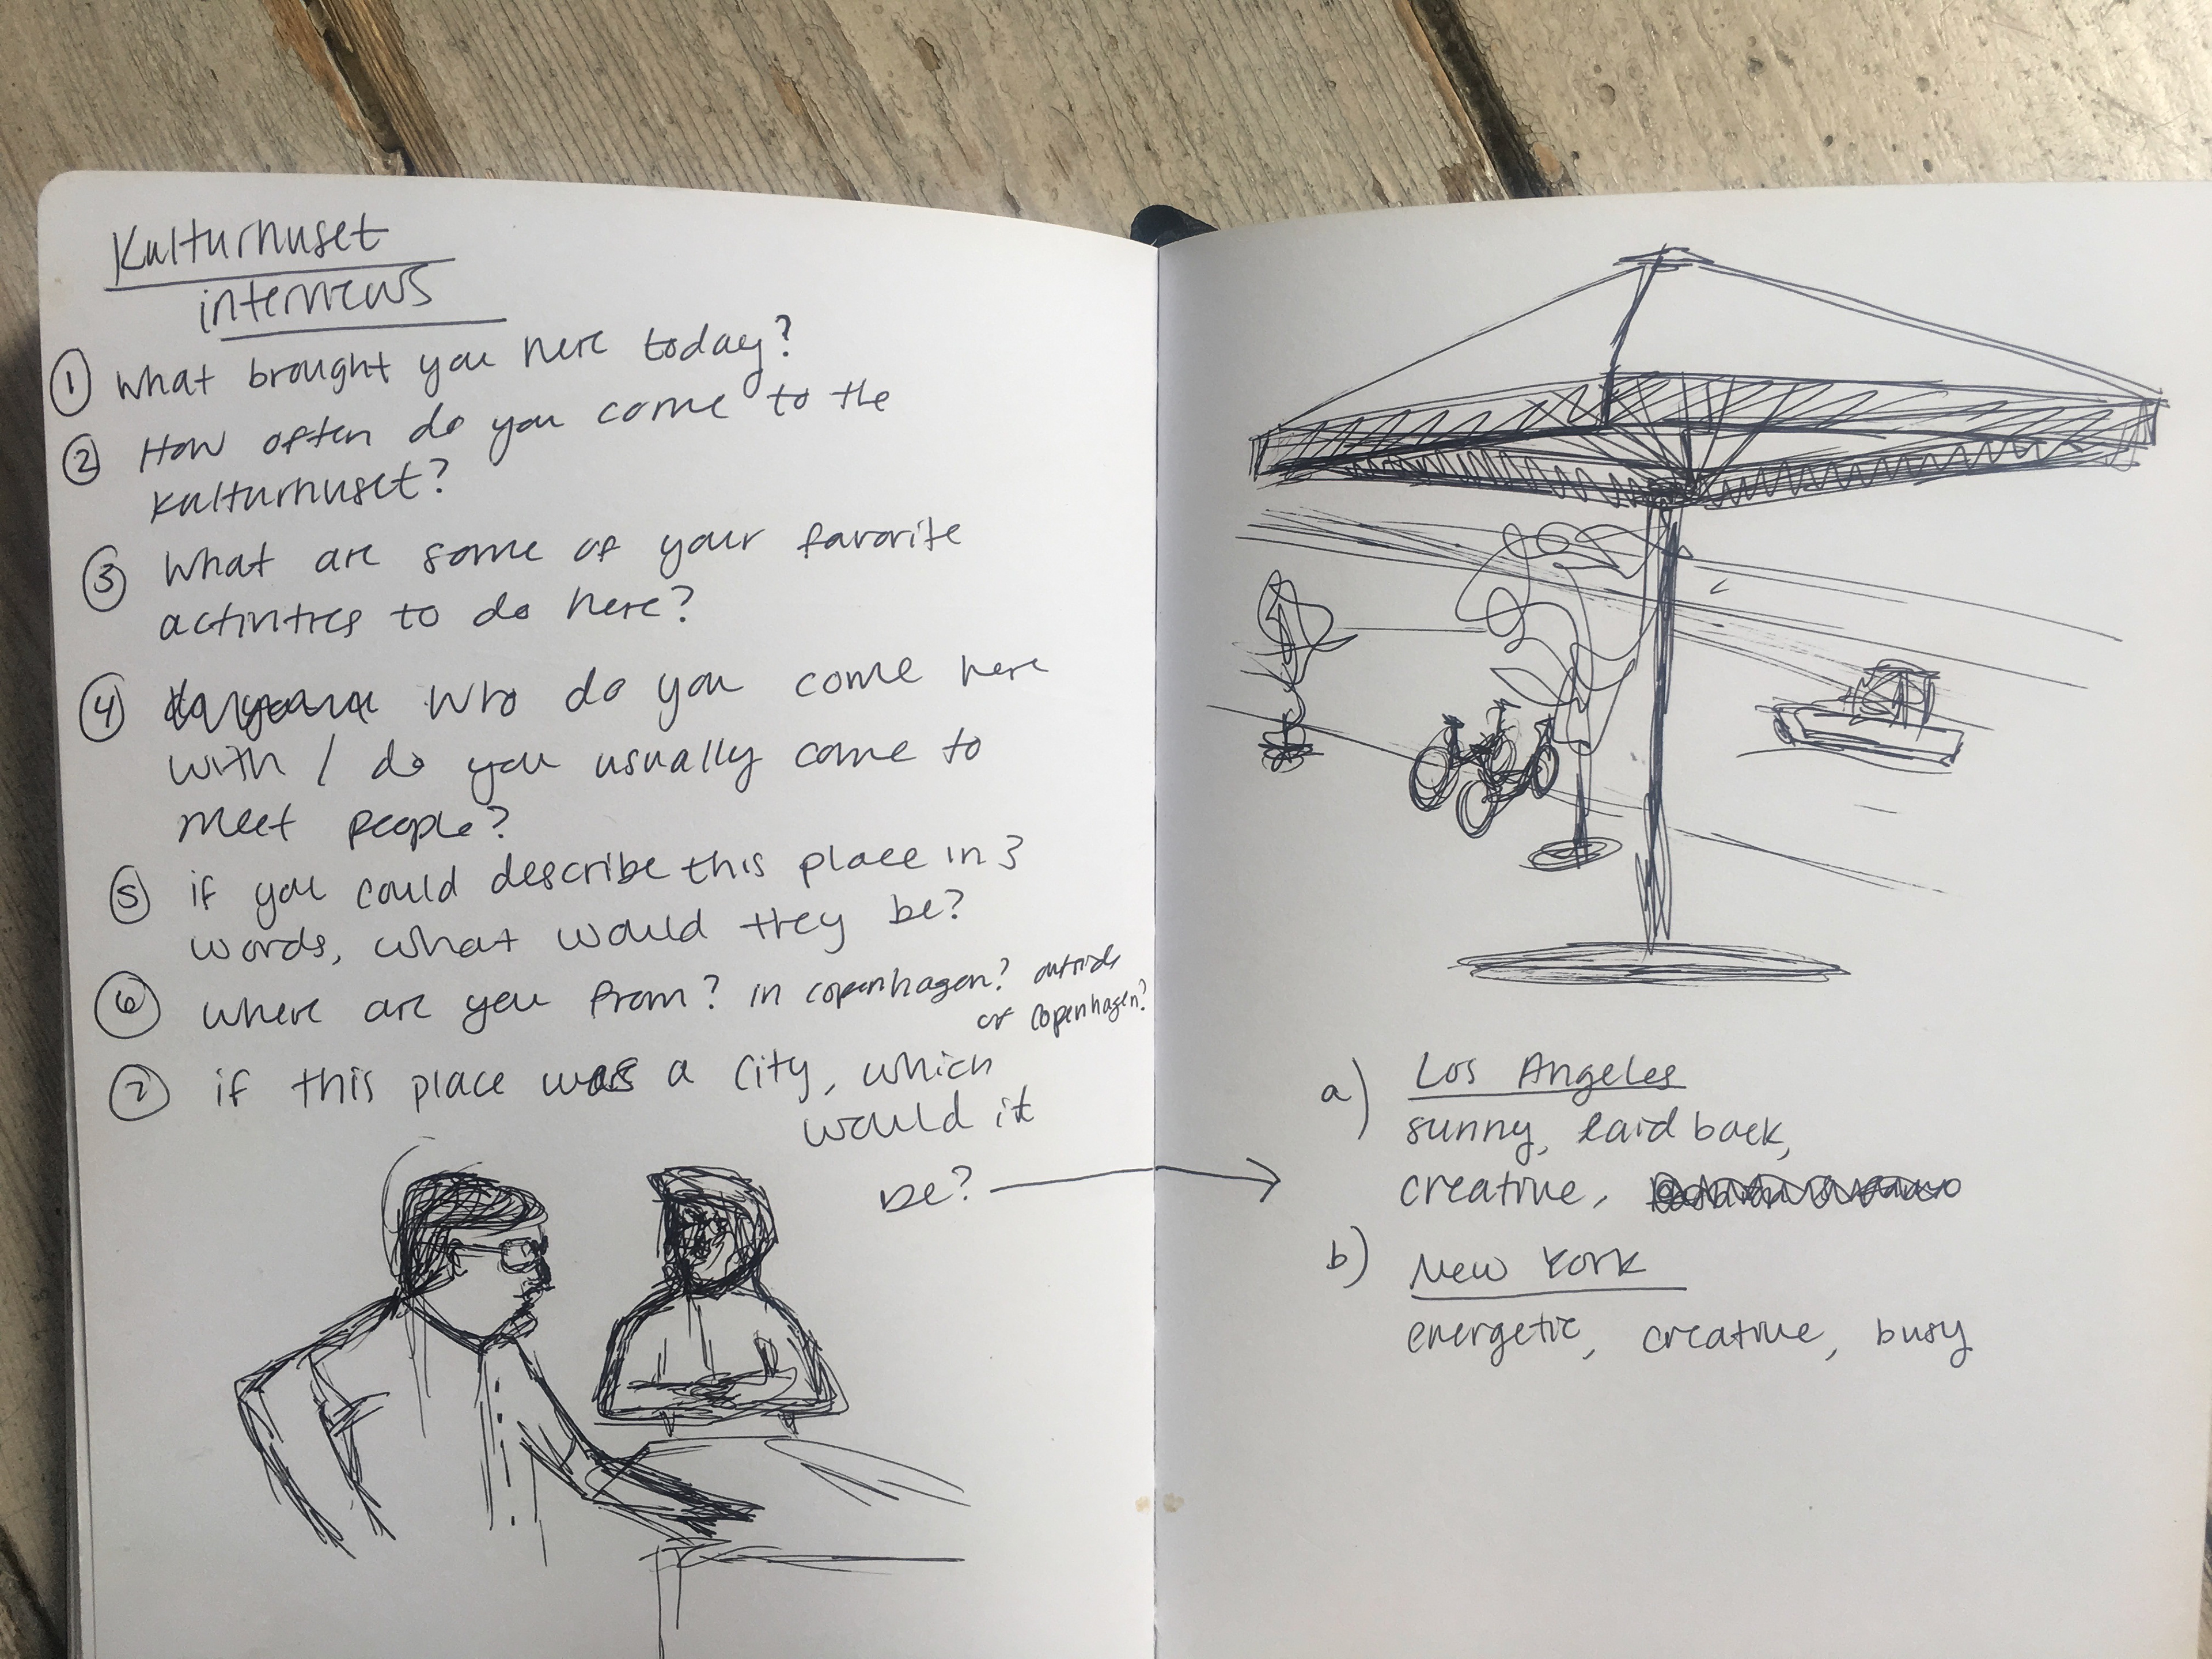 Kulturhuset
interviews
① What brought you here today?
② How often do you come to the
Kulturhuset?
③ What are some of your favorite
activities to do here?
④ Who do you come here
with / do you usually come to
meet people?
⑤ if you could describe this place in 3
words, what would they be?
⑥ where are you from? in copenhagen? outside
of copenhagen?
⑦ if this place was a city, which
would it
be?
a) Los Angeles
sunny, laid back,
creative,
b) New York
energetic, creative, busy